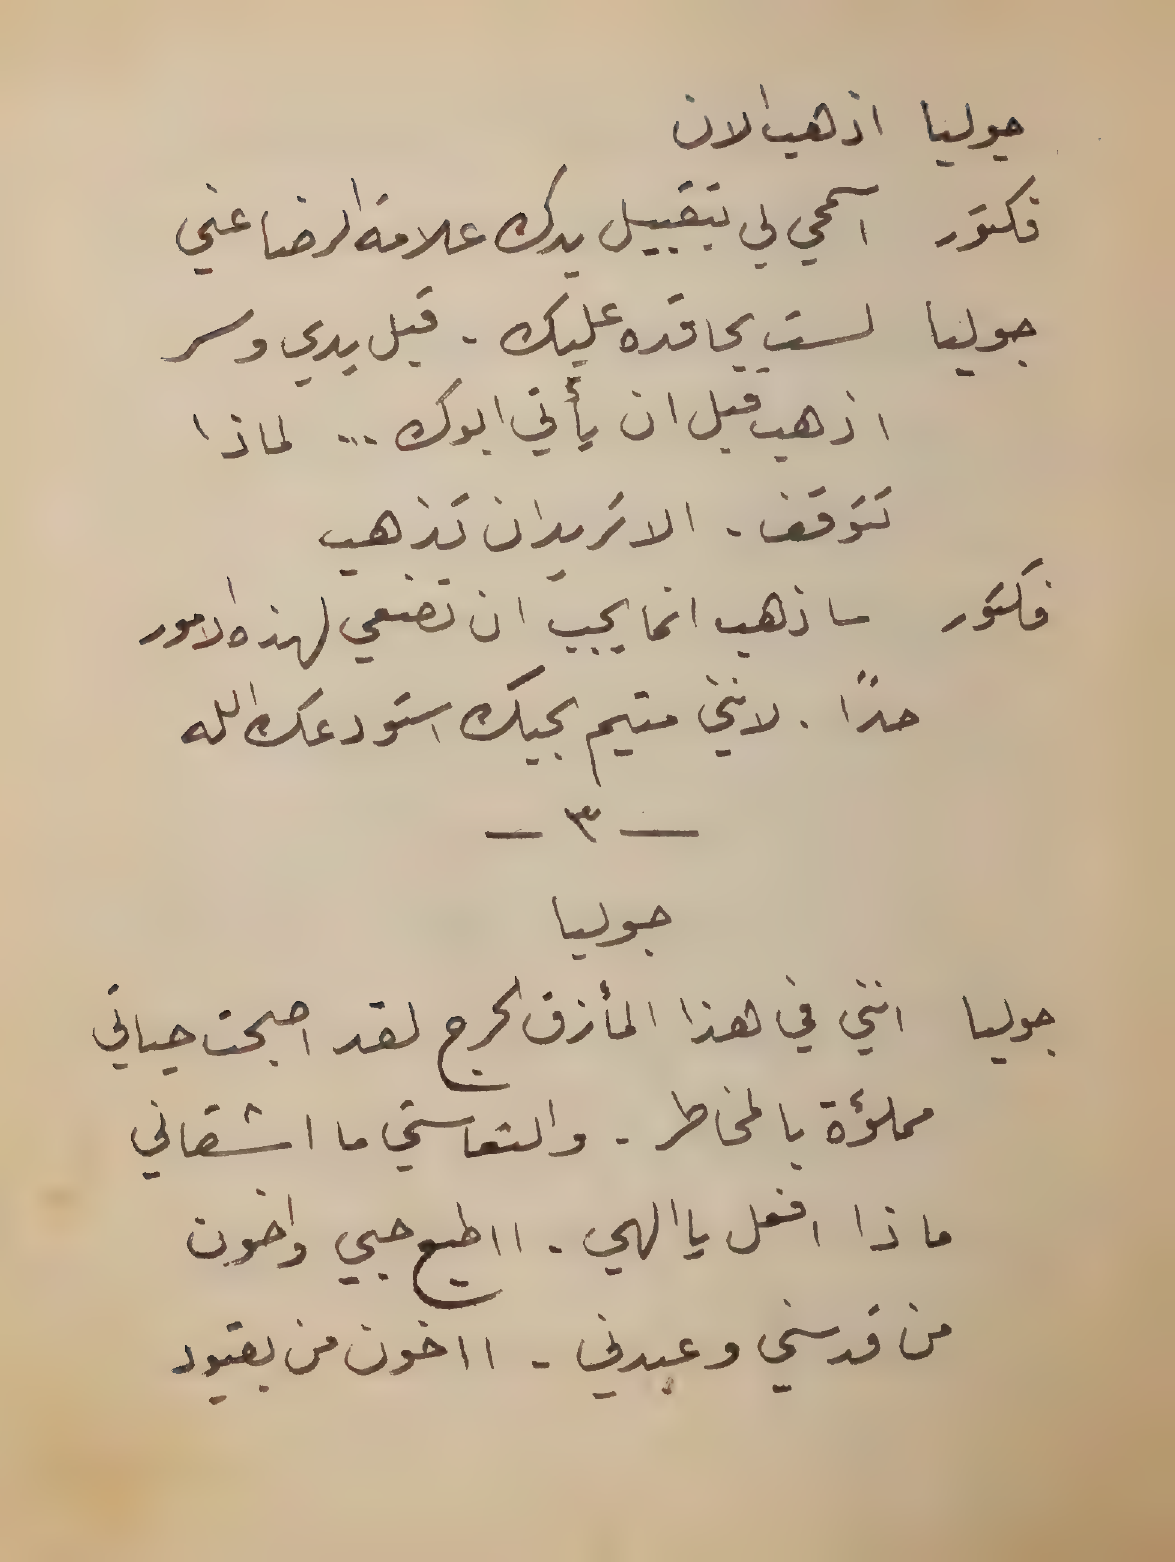 جوليا اذهب الان
فكتور اسمحي لي بتقبيل يدك علامة الرضا عني
جوليا لست بحاقده عليك - قبل يدي وسر
اذهب قبل ان يأتي ابوك ... لماذا
تتوقف - الا تريد ان تذهب
فكتور ساذهب انما يجب ان تضعي لهذه الامور
حدًا . لانني متيم بحبك استودعك الله
— ٣ —
جوليا
جوليا انني في هذا المأزق الحرج لقد اصبحت حياتي
مملؤة بالمخاطر - والتعاستي ما اشقاني
ماذا افعل يا الهي - ااطيع حبي واخون
من قدسني وعبدني - ااخون من بقيود